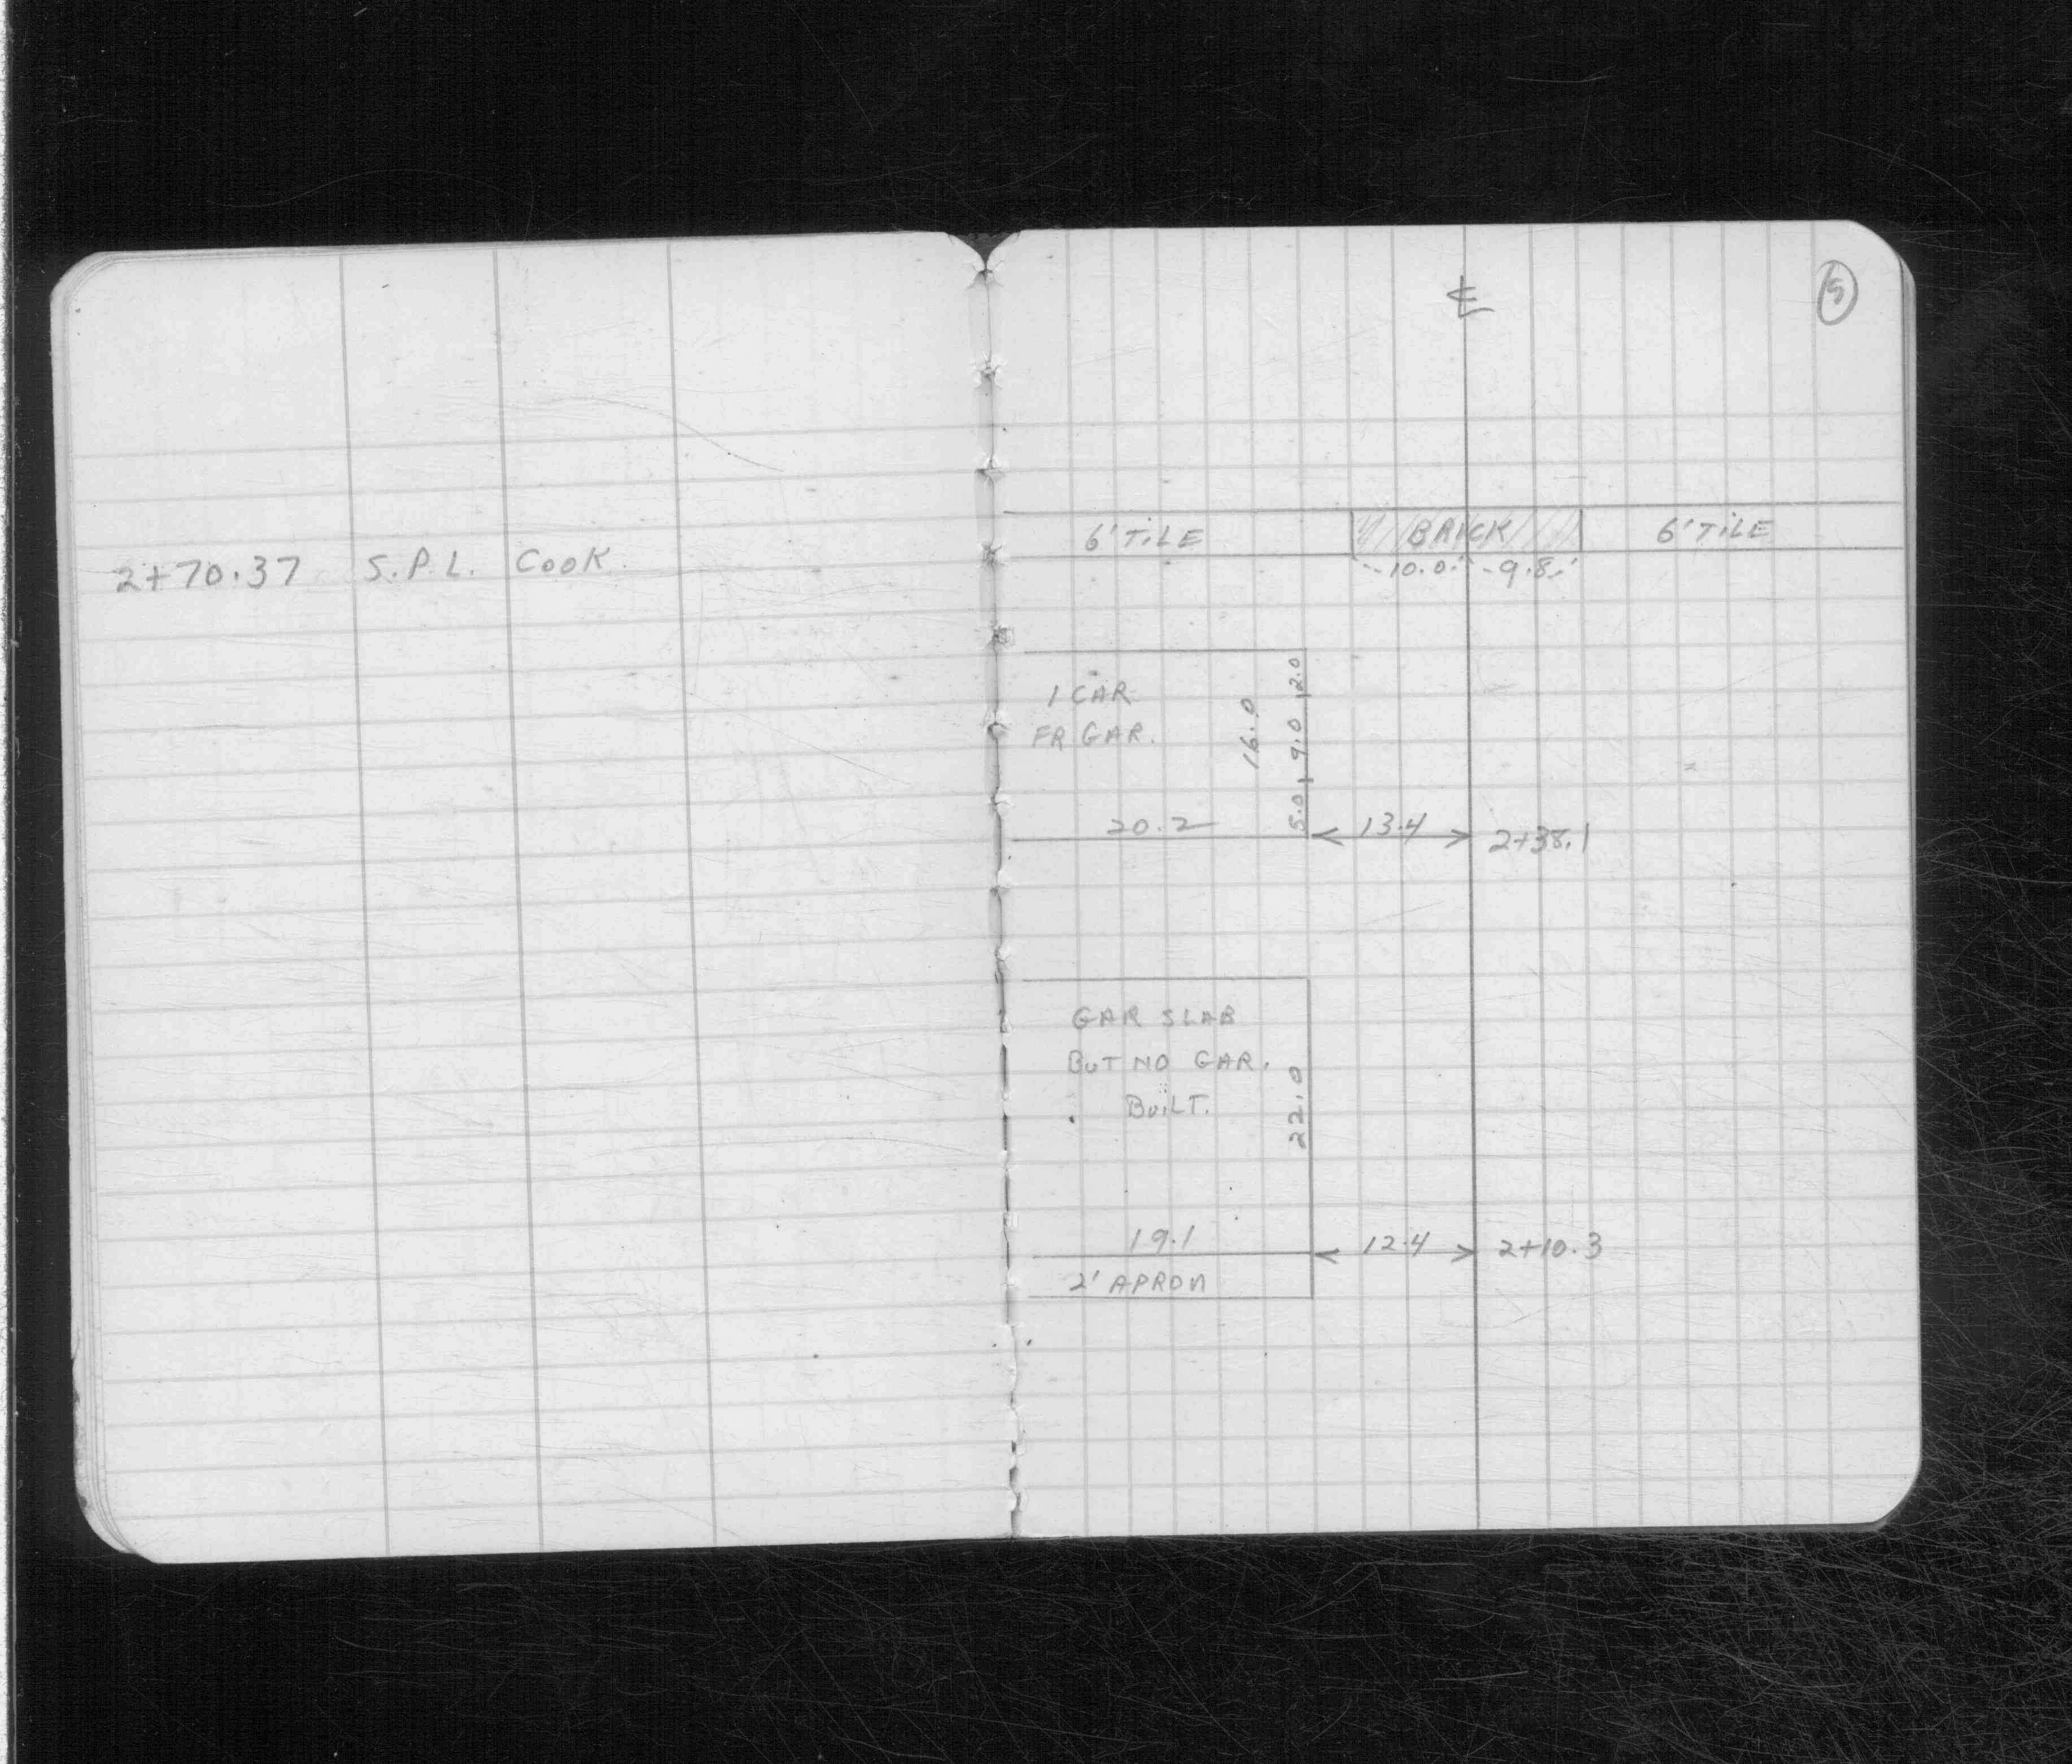 2+70.37 S.P.L. COOK.
℄
5
6' TILE BRICK 6' TILE
10.0 9.8
1 CAR
FR GAR.
16.0
5.0 9.0 2.0
20.2 13.4 2+38.1
GAR SLAB
BUT NO GAR.
BUILT.
22.0
19.1 12.4 2+10.3
2' APRON